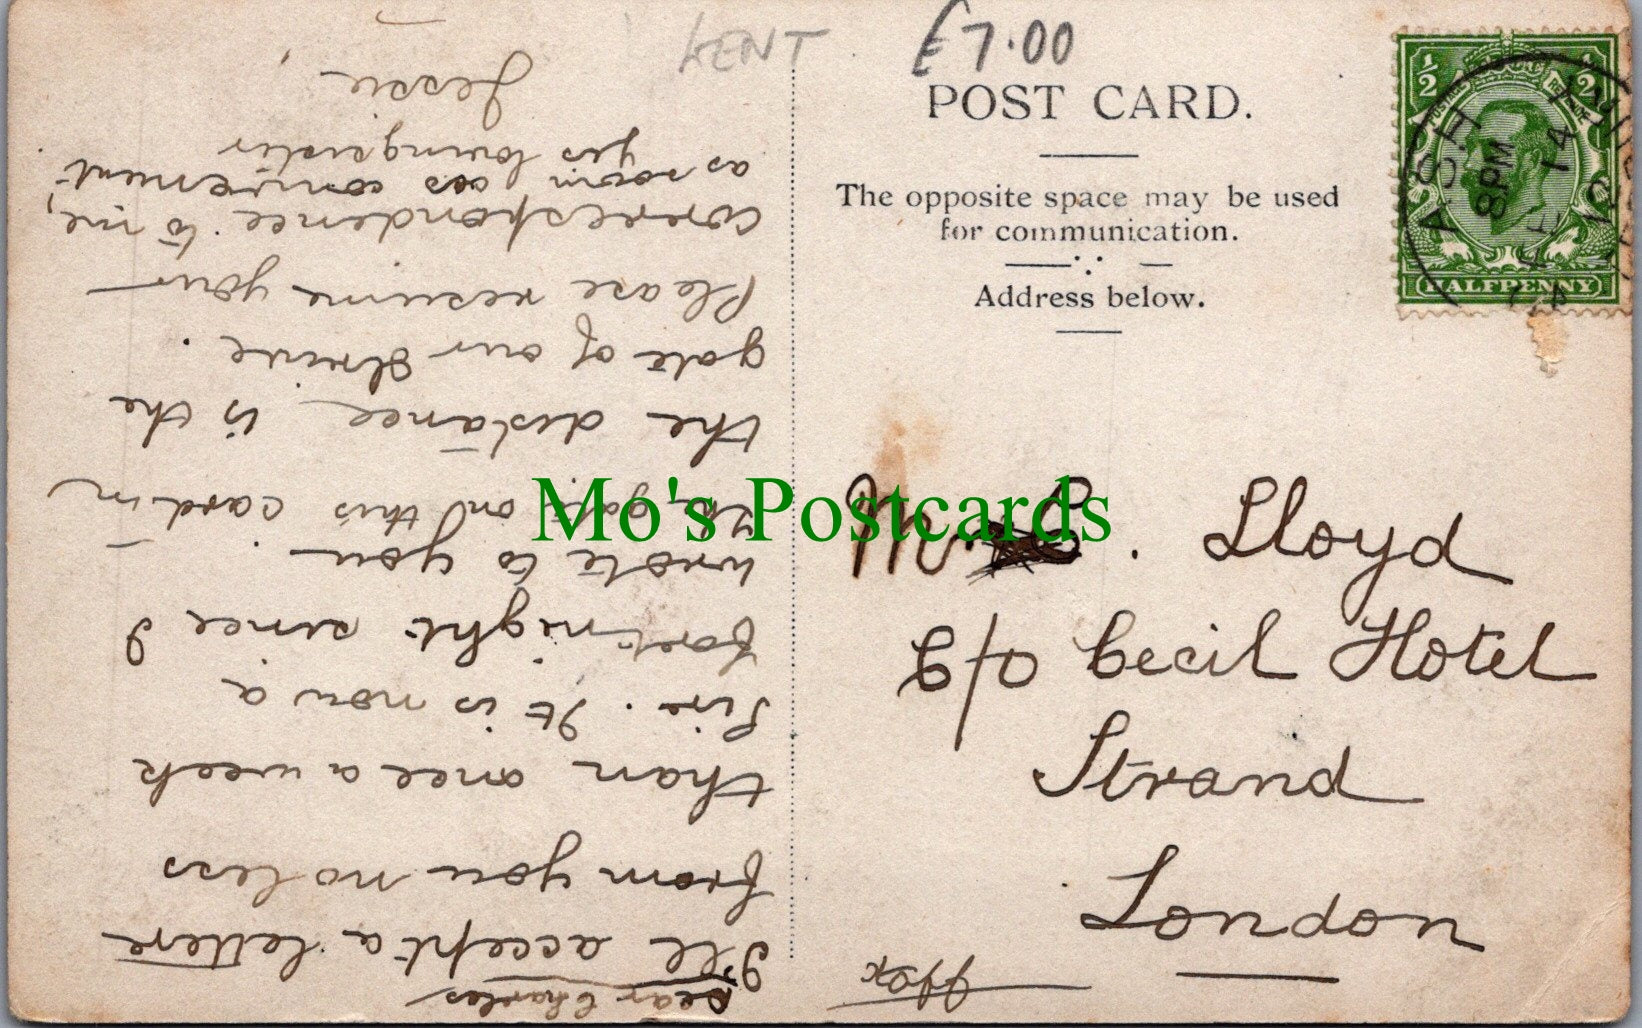 KENT
£7.00
POST CARD.
The opposite space may be used
for communication.
Address below.
½ ½
HALFPENNY
ASH
8 PM
4 FE 14
Mo's Postcards
Mr C. Lloyd
C/o Cecil Hotel
Strand
London
Dear Charles
I'll accept a lettere
from you no less
than once a week
Sir. It is now a
fortnight since I
wrote to you.
The gate on this card in
the distance is the
gate of our Drive.
Please resume your
correspondence to me,
as soon as convenient
yrs loving sister
Jessie